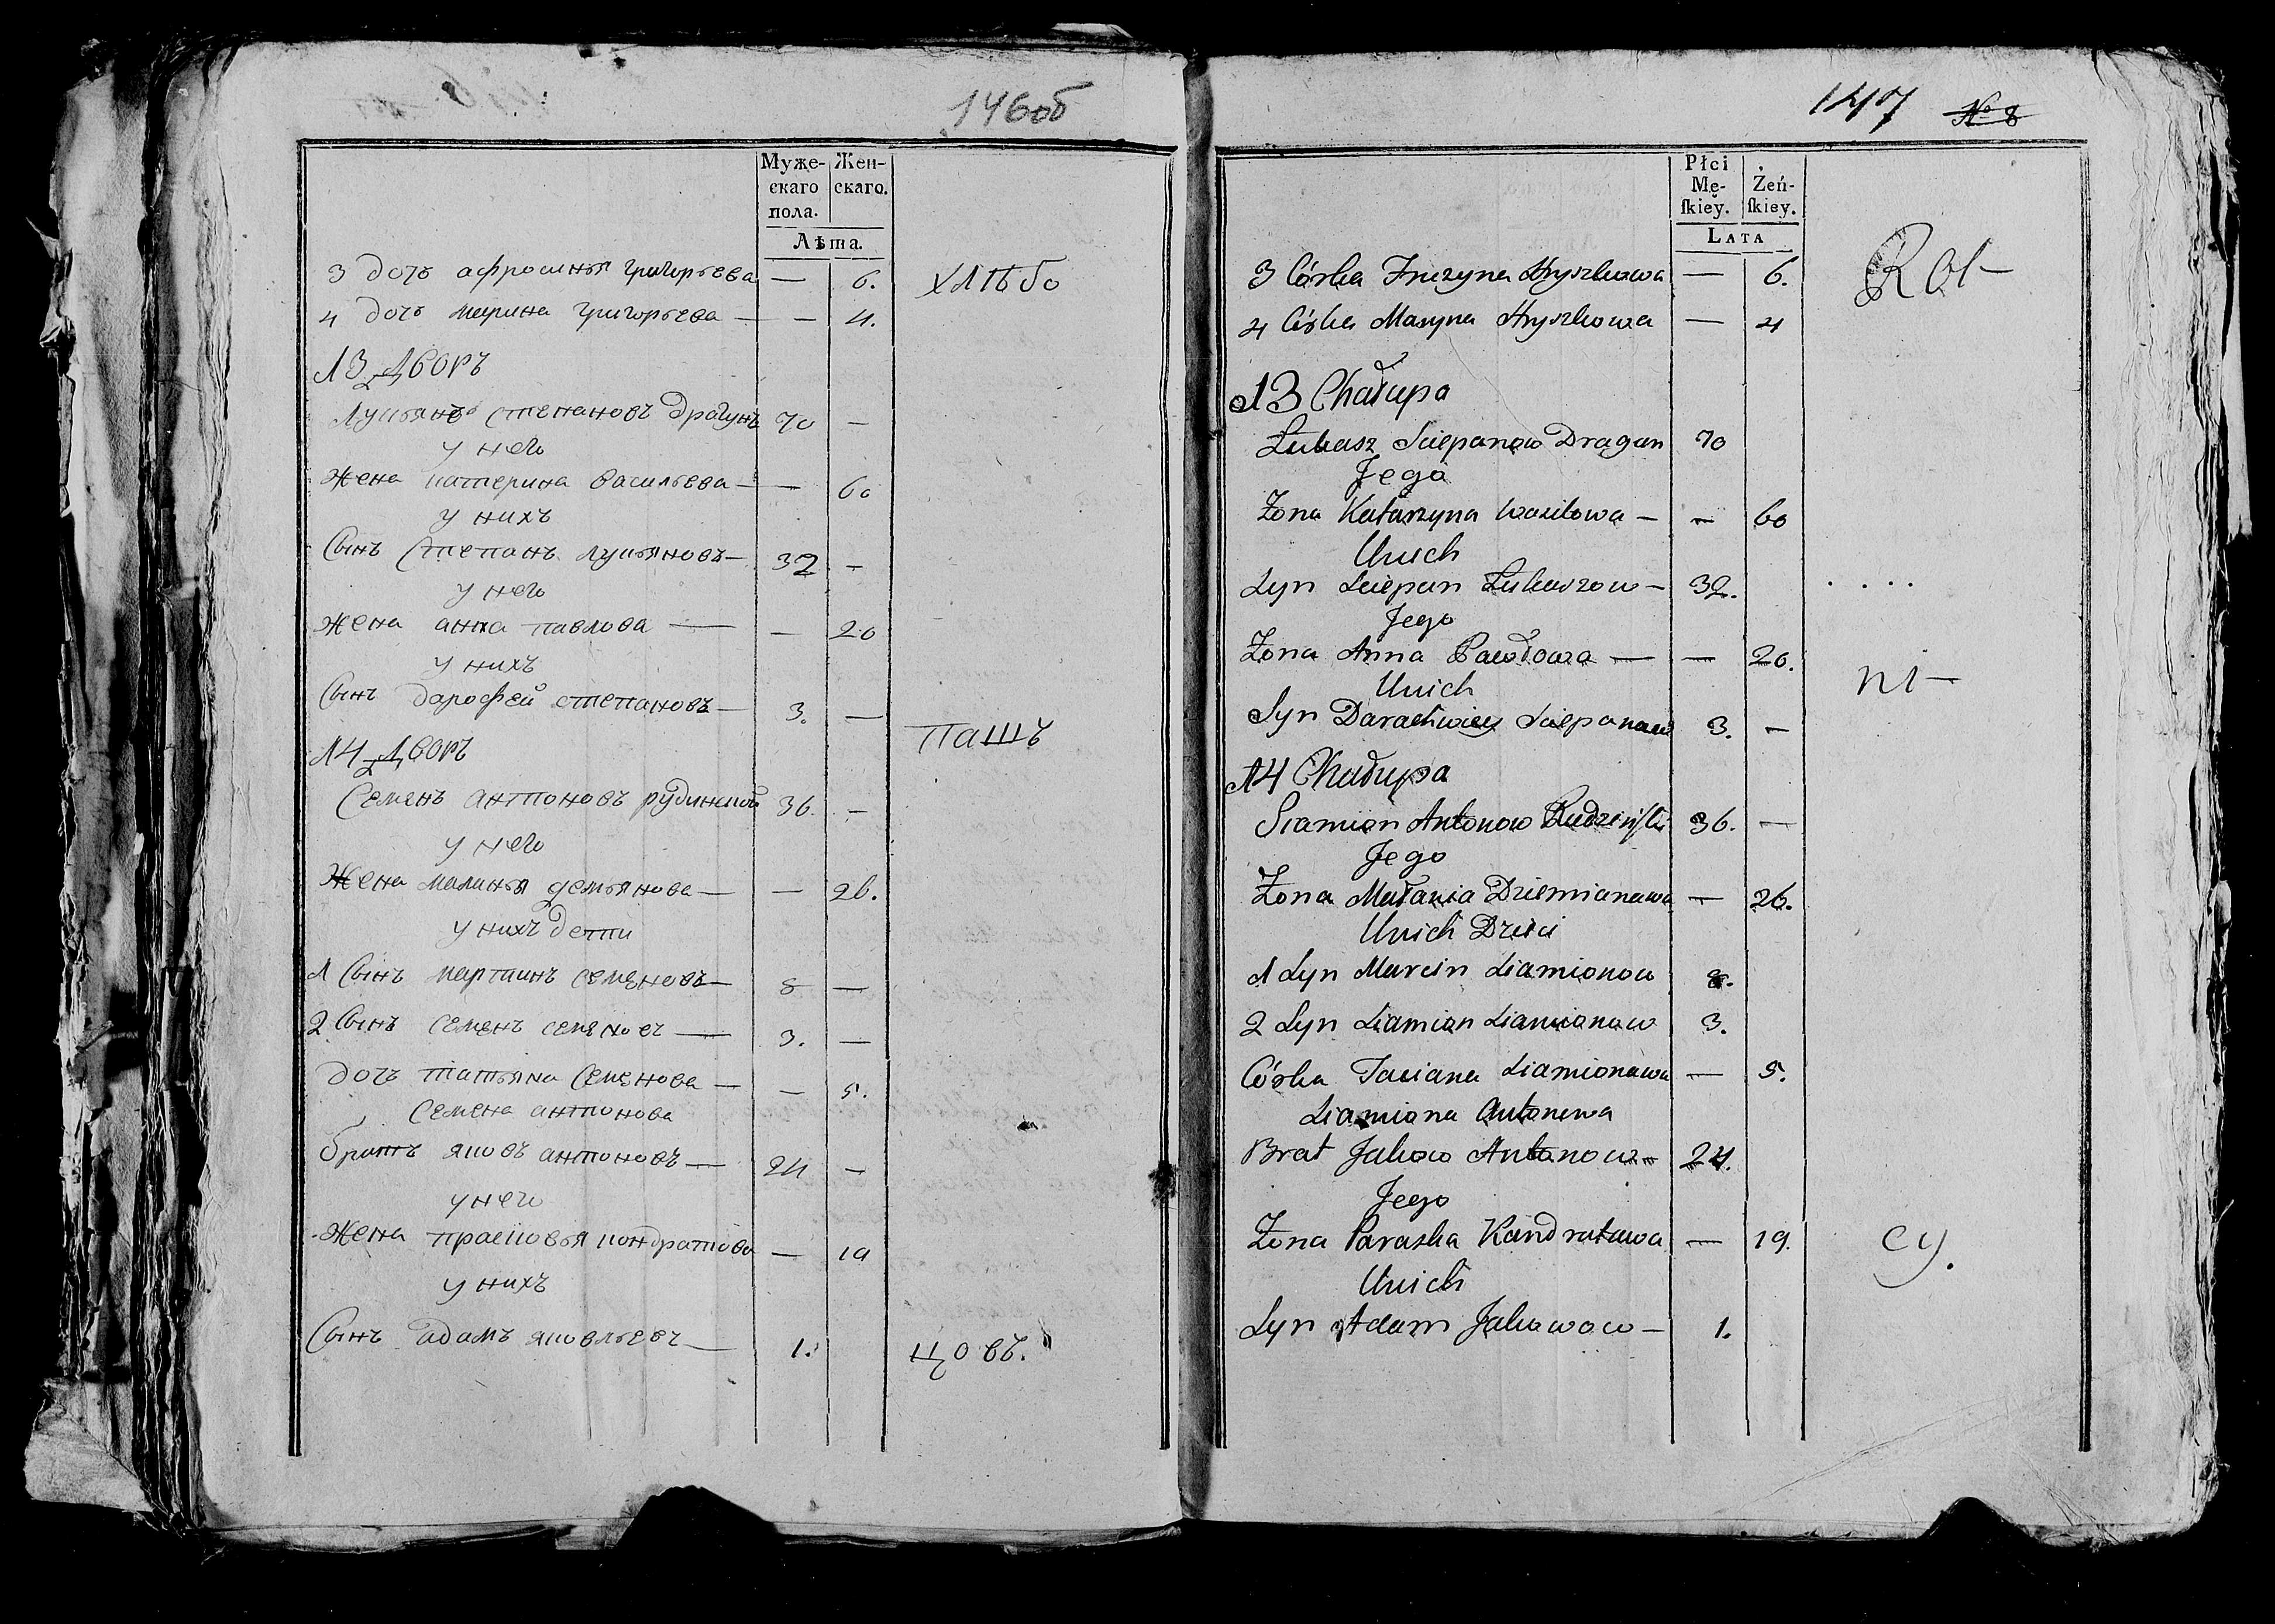 146об
Муже-
скаго
пола.
Жен-
скаго.
Лѣта.
3 дочь афросинья григорьева — 6. хлѣбо
4 дочь марина григорьева — — 4.
13 Дворъ
Лукьянъ степановъ драгунъ 70 —
у него
Жена катерина васильева — — 60
у нихъ
Сынъ Степанъ лукьяновъ — 32 —
у него
жена анна павлова — — 20
у нихъ
Сынъ дарофей степановъ — 3. —
пашъ
14 Дворъ
Семенъ антоновъ рудинской 36. —
у него
Жена маланья демьянова — — 26.
у нихъ дети
1 Сынъ мартинъ семеновъ — 8 —
2 Сынъ семенъ семеновъ — 3. —
дочь татьяна Семенова — — 5.
Семена антонова
братъ яковъ антоновъ — 24 —
у него
Жена прасковья кондратова — 19
у нихъ
Сынъ адамъ яковлевъ — 1.
цовъ.
147 № 8
Płci
Mę-
skiey.
Żeń-
skiey.
Lata
3 Córka Fruzyna Hryszkowa — 6. Rol-
4 Córka Maryna Hryszkowa — 4
13 Chałupa
Łukasz Sciepanow Dragan 70
Jego
Zona Katarzyna Wasilowa — — 60
Unich
Syn Sciepan Łukaszow — 32.
Jego
Zona Anna Pawłowa — — 20.
ni-
Unich
Syn Darachwiey Sciepanow 3. —
14 Chałupa
Siamion Antonow Rudziński 36. —
Jego
Zona Małania Dziemianawa — 26.
Unich Dzieci
1 Syn Marcin Siamionow 8.
2 Syn Siamion Siamionow 3.
Córka Taciana Siamionawa — 5.
Siamiona Antonowa
Brat Jakow Antonow — 24.
Jego
Zona Paraska Kandratawa — 19. cy.
Unich
Syn Adam Jakowow — 1.